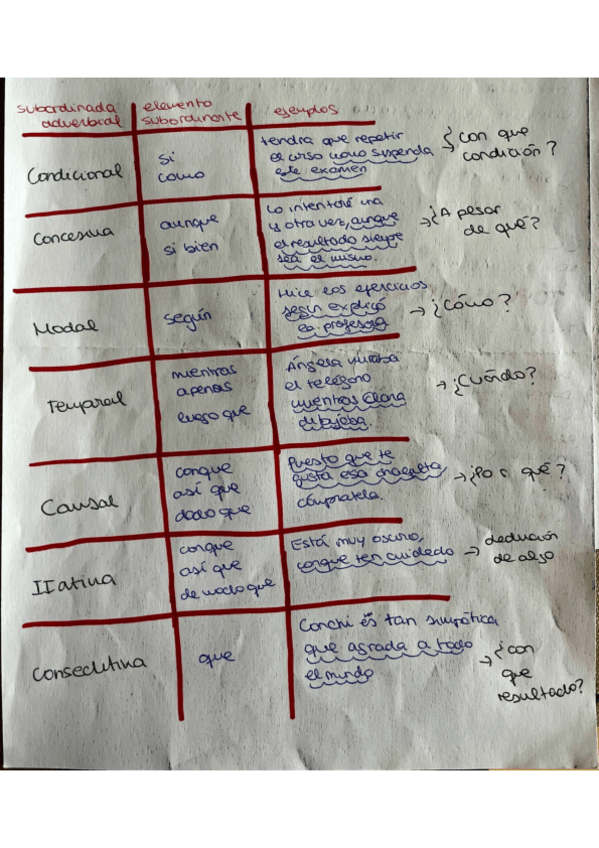 subordinada adverbial
elemento subordinante
ejemplos
Condicional
si
como
tendra que repetir
el curso como suspenda
este examen
¿con que
condición?
Concesiva
aunque
si bien
Lo intentaré una
y otra vez, aunque
el resultado siempre
será el mismo.
→ ¿A pesar
de qué?
Modal
según
Hice los ejercicios
según explicó
la profesora
→ ¿Cómo?
Temporal
mientras
apenas
luego que
Ángela miraba
el teléfono
mientras Clara
dibujaba.
→ ¿Cuándo?
Causal
conque
así que
dado que
Puesto que te
gusta esa chaqueta
cómpratela.
→ ¿Por qué?
Ilativa
conque
así que
de modo que
Está muy oscuro,
conque ten cuidado
→ deducción
de algo
Consecutiva
que
Conchi es tan simpática
que agrada a todo
el mundo
→ ¿con
que
resultado?